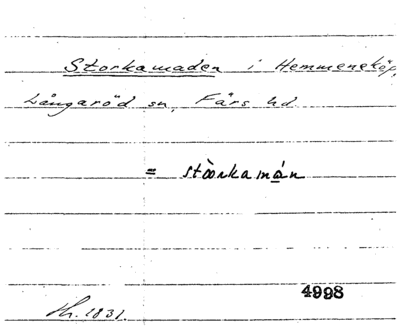 Storkamaden i Hemmeneköp,
Långaröd sn, Färs hd
= stòorkamán
4998
Hr. 1831.